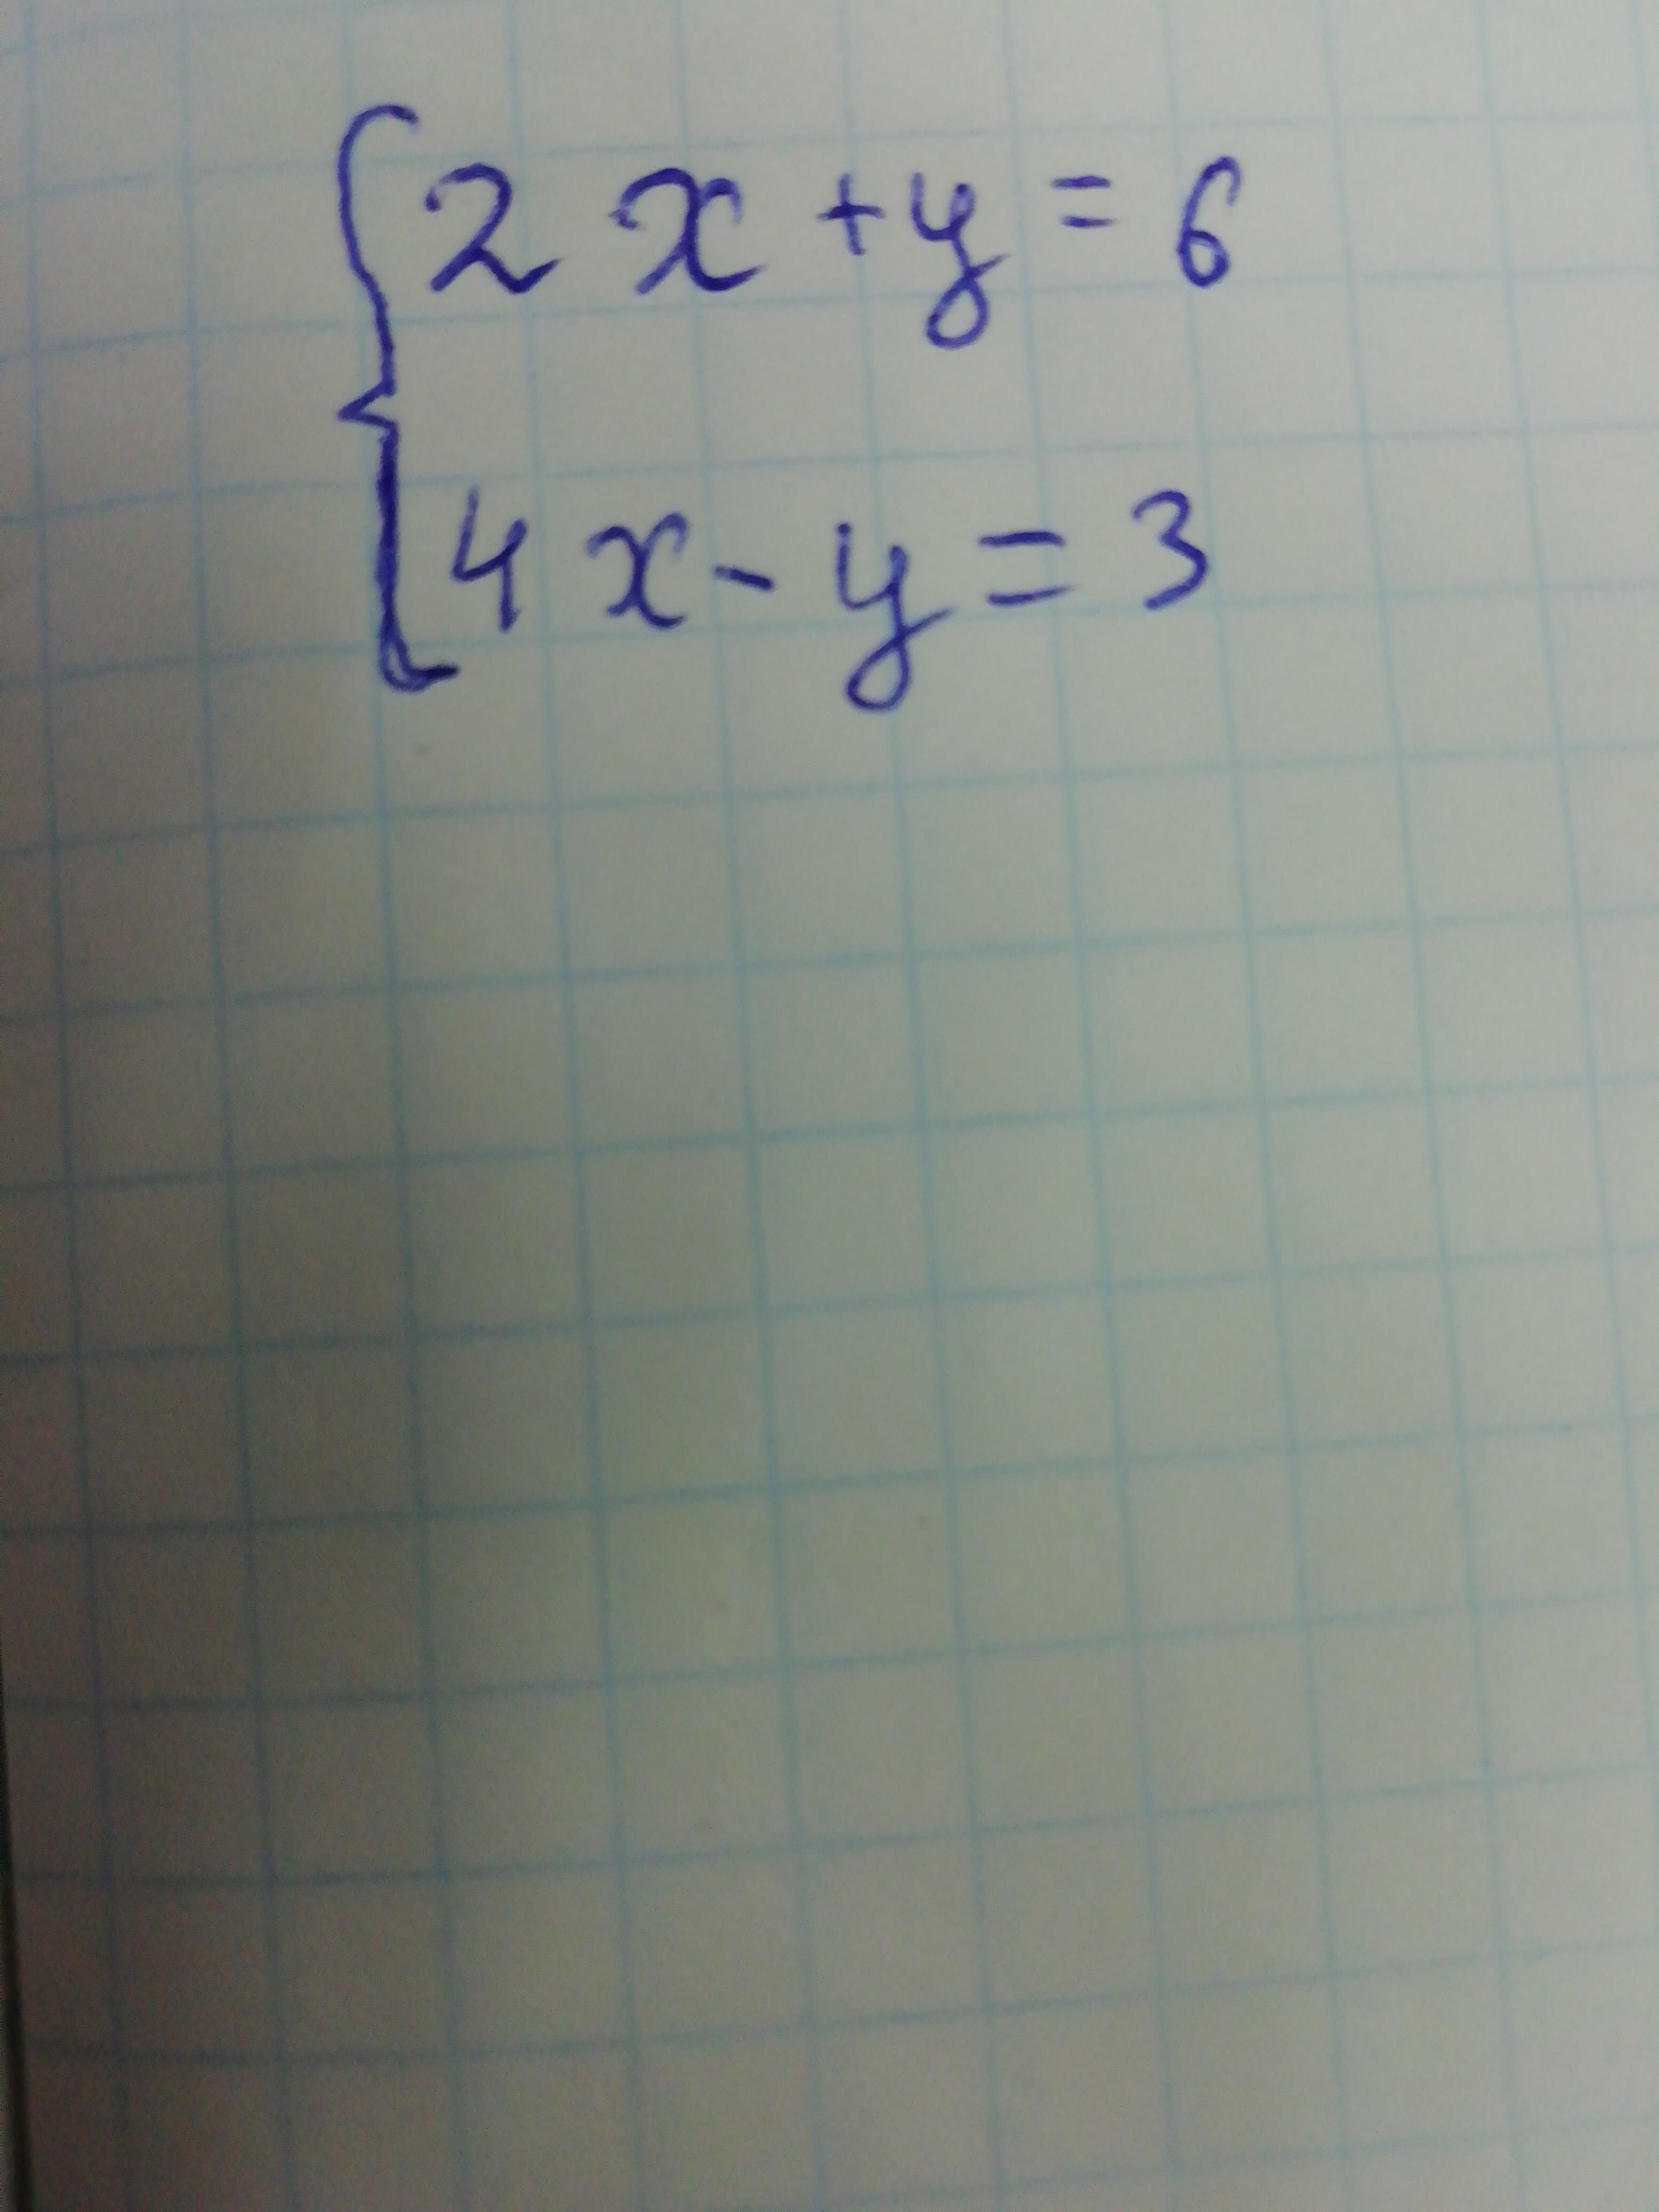 2x+y=6
4x-y=3